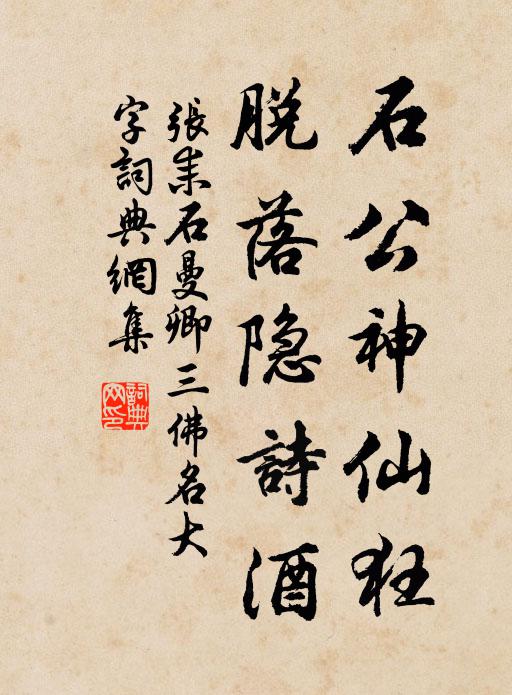 石公神仙狂
脱落隐詩酒
張耒石曼卿三佛名大
字詞典網集
詞典網印